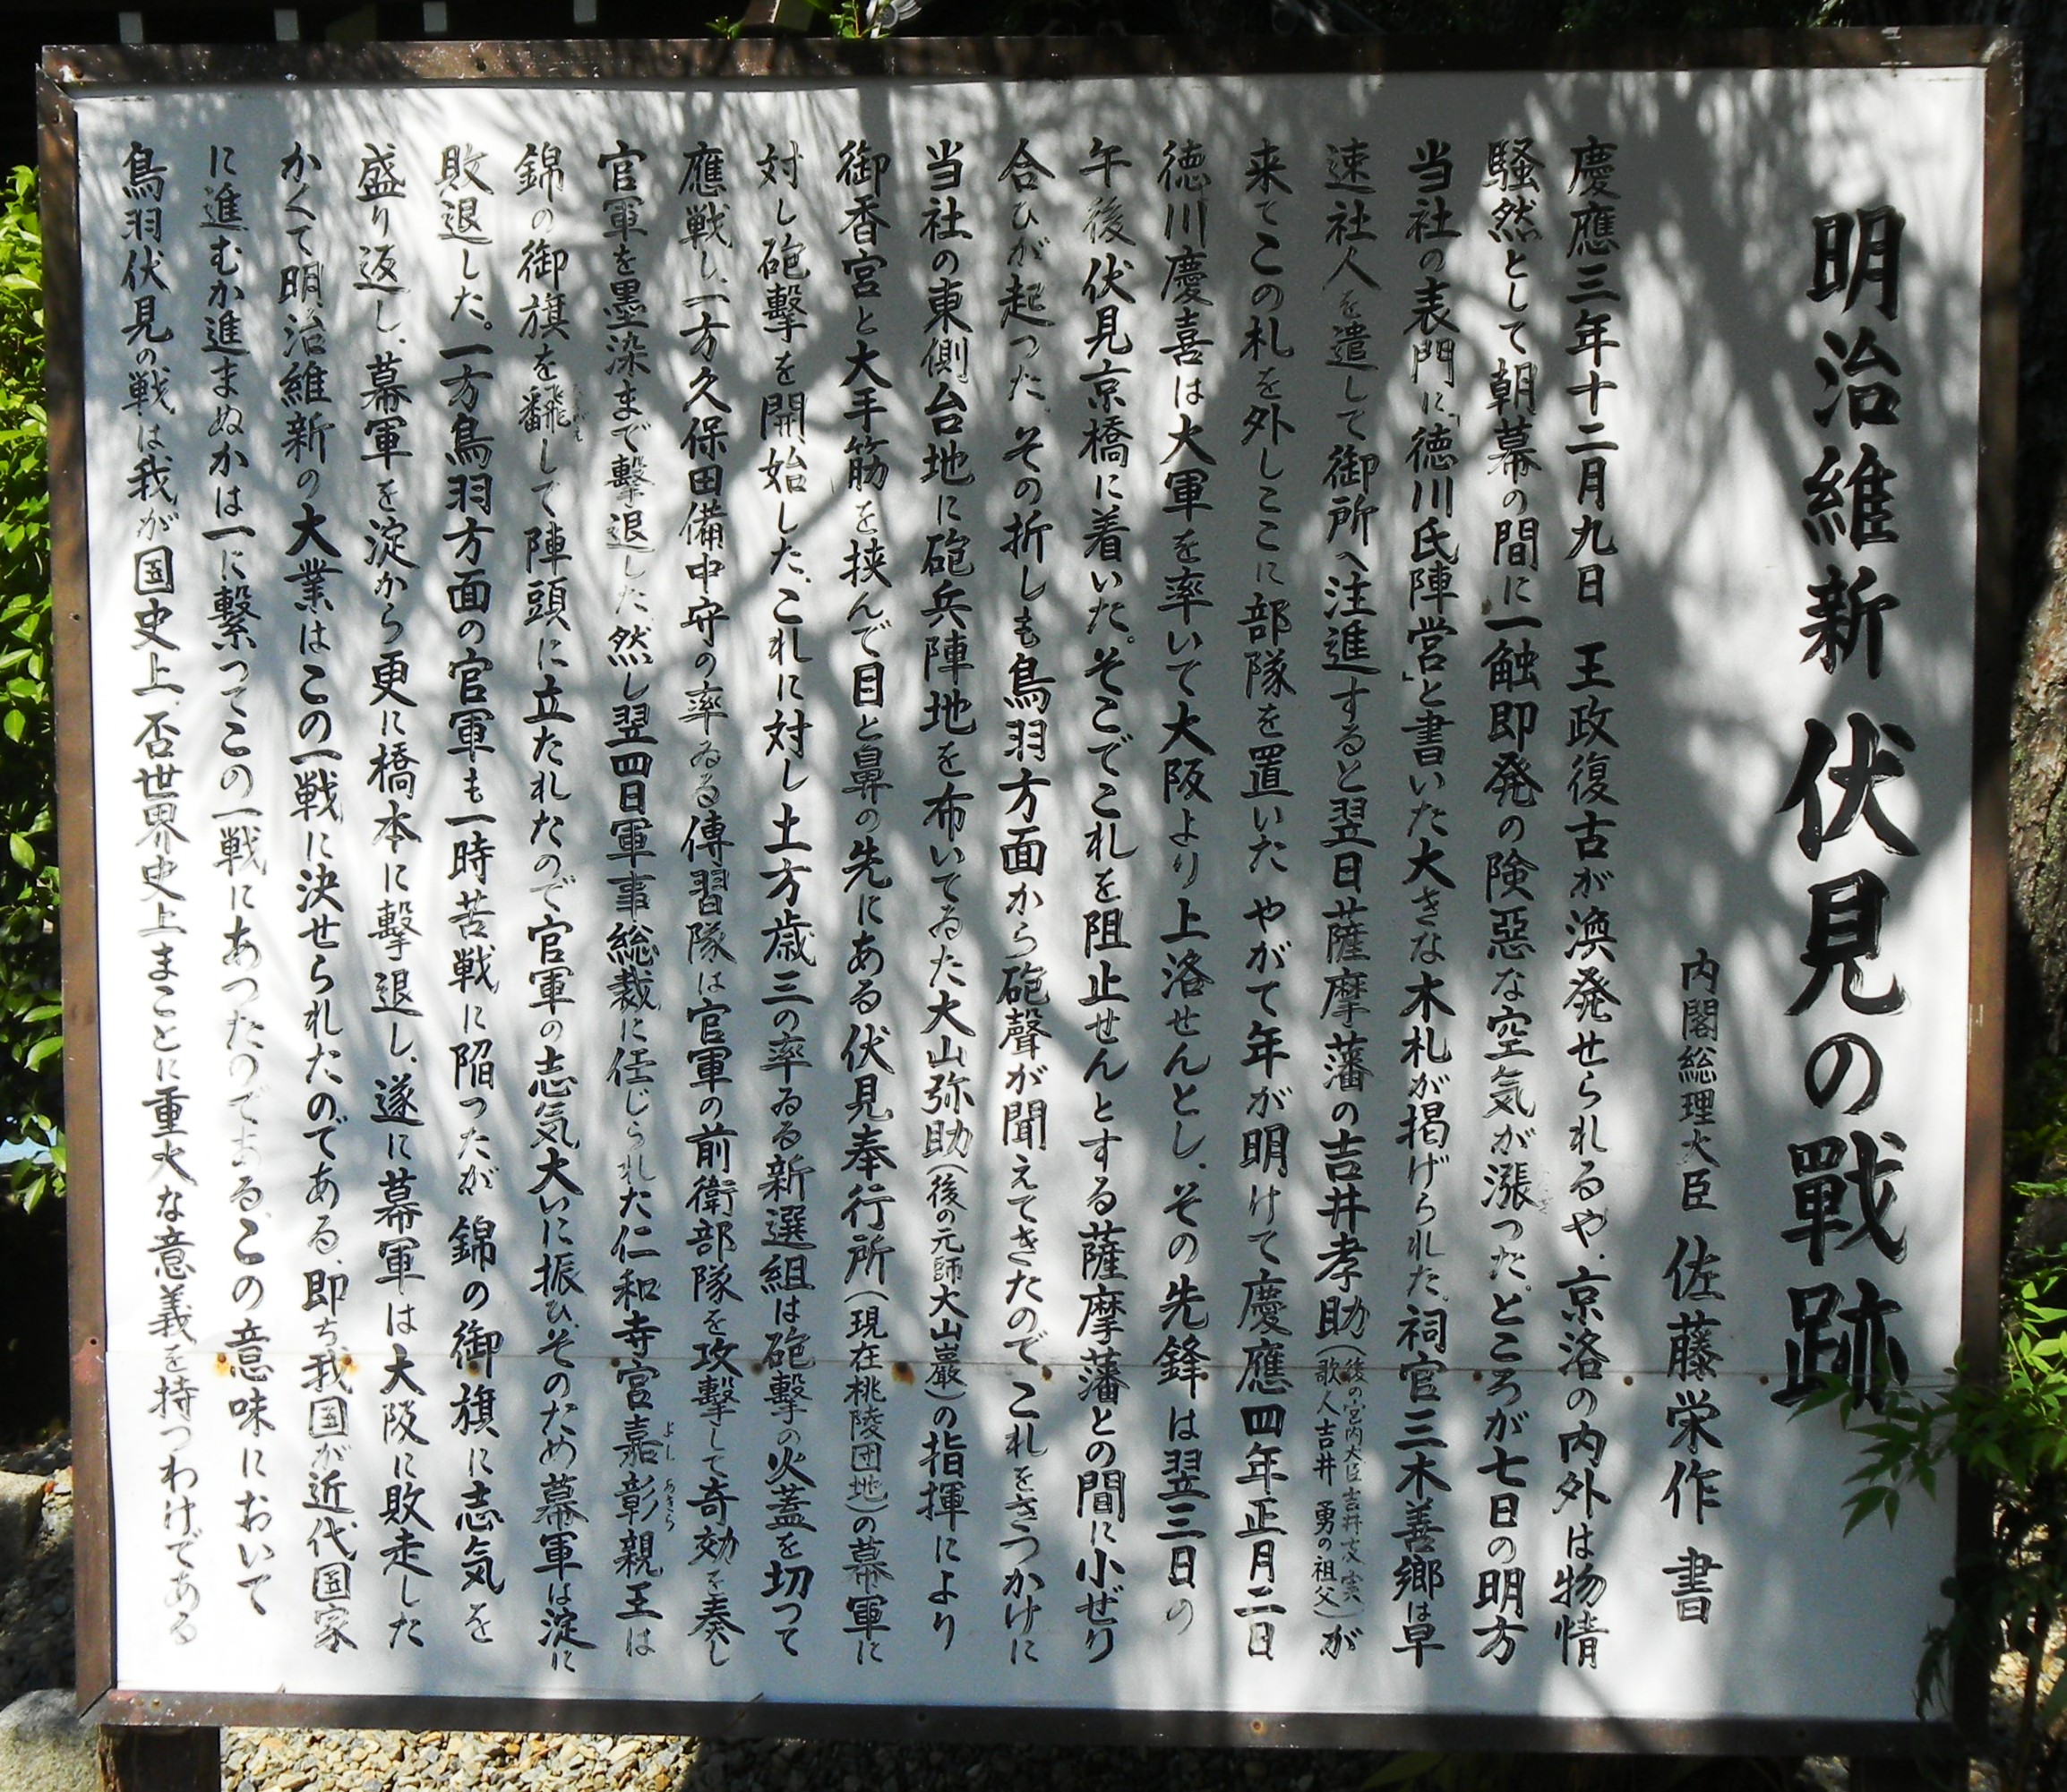 明治維新 伏見の戰跡
内閣総理大臣 佐藤栄作 書
慶應三年十二月九日 王政復古が渙発せられるや、京洛の内外は物情
騒然として朝幕の間に一触即発の険惡な空気が漲つた。ところが七日の明方
当社の表門に「徳川氏陣営」と書いた大きな木札が掲げられた。祠官三木善郷は早
速社人を遣して御所へ注進すると翌日薩摩藩の吉井孝助(後の宮内大臣吉井友実 歌人吉井勇の祖父)が
来てこの札を外しここに部隊を置いた やがて年が明けて慶應四年正月二日
徳川慶喜は大軍を率いて大阪より上洛せんとし、その先鋒は翌三日の
午後伏見京橋に着いた。そこでこれを阻止せんとする薩摩藩との間に小ぜり
合ひが起つた、その折しも鳥羽方面から砲聲が聞えてきたので これをきつかけに
当社の東側台地に砲兵陣地を布いてゐた大山弥助(後の元師大山巌)の指揮により
御香宮と大手筋を挟んで目と鼻の先にある伏見奉行所(現在桃陵団地)の幕軍に
対し砲擊を開始した、これに対し土方歳三の率ゐる新選組は砲擊の火蓋を切つて
應戦し、一方久保田備中守の率ゐる傳習隊は官軍の前衛部隊を攻擊して奇効を奏し
官軍を墨染まで擊退した、然し翌四日軍事総裁に任じられた仁和寺宮嘉彰親王は
錦の御旗を飜して陣頭に立たれたので官軍の志気大いに振ひ、そのため幕軍は淀に
敗退した。一方鳥羽方面の官軍も一時苦戦に陥つたが 錦の御旗に志気を
盛り返し、幕軍を淀から更に橋本に擊退し、遂に幕軍は大阪に敗走した
かくて明治維新の大業はこの一戦に決せられたのである、即ち我国が近代国家
に進むか進まぬかは一に繋つてこの一戦にあつたのである、この意味において
鳥羽伏見の戦は我が国史上、否世界史上まことに重大な意義を持つわけである